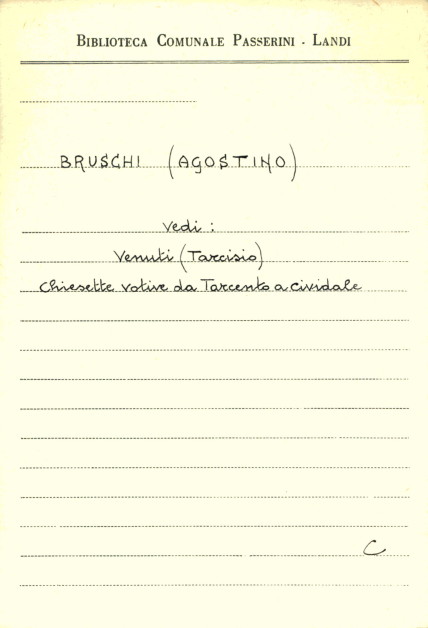 BIBLIOTECA COMUNALE PASSERINI - LANDI
BRUSCHI (AGOSTINO)
Vedi :
Venuti (Tarcisio)
Chiesette votive da Tarcento a Cividale
C